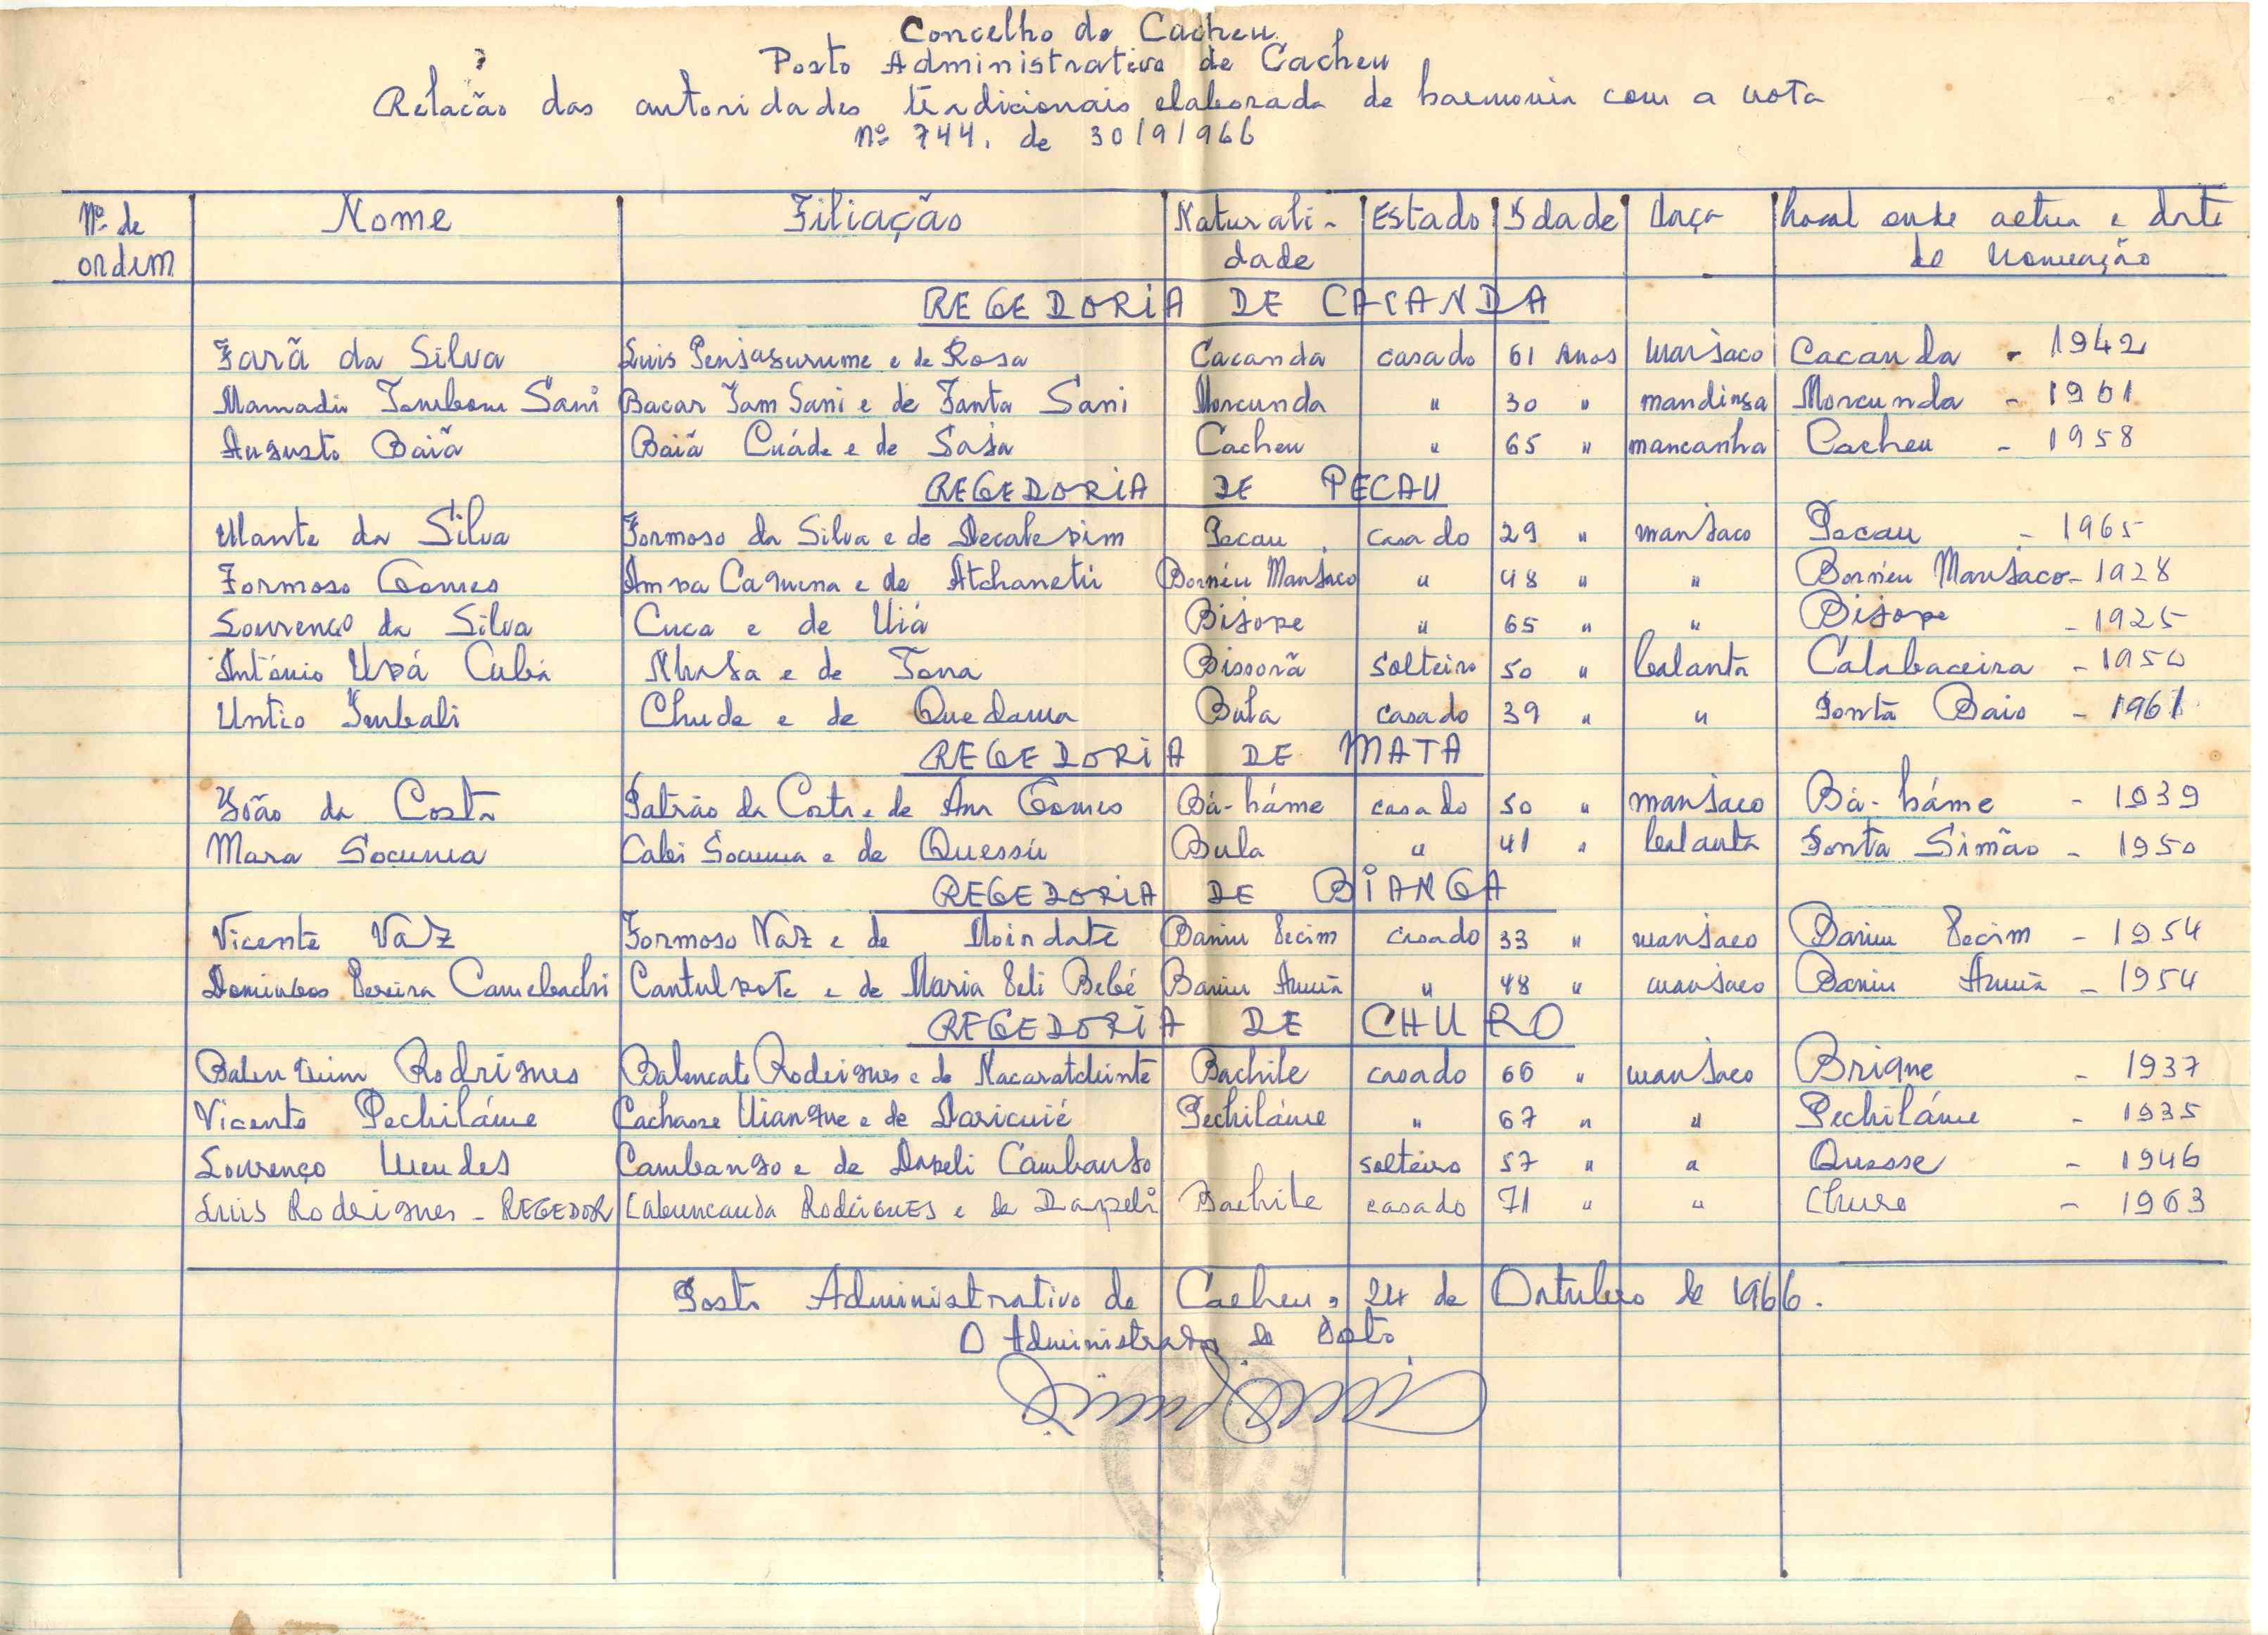 Concelho de Cacheu
Posto Administrativo de Cacheu
Relacão das autoridades tradicionais elaborada de harmonia com a nota
Nº 744. de 30/9/966
Nº de ordem Nome Filiação Naturalidade Estado Idade Raça Local onde actua e data de nomeação
REGEDORIA DE CACANDA
Farã da Silva Luis Penjasurume e de Rosa Cacanda casado 61 Anos manjaco Cacanda - 1942
Mamadu Tambom Sani Bacar Jam Sani e de Fanta Sani Morcunda " 30 " mandinga Morcunda - 1961
Augusto Baiã Baiã Cuáde e de Saja Cacheu " 65 " mancanha Cacheu - 1958
REGEDORIA DE PECAU
Ulante da Silva Formoso da Silva e de Decalepim Pecau casado 29 " manjaco Pecau - 1965
Formoso Gomes Ampa Caquena e de Atchanetú Bornéu Manjaco " 48 " " Bornéu Manjaco - 1928
Lourenço da Silva Cuca e de Uiá Bijope " 65 " " Bijope - 1925
António Upá Cubá Nhaja e de Tona Bissorã solteiro 50 " balanta Calabaceira - 1950
Untio Imbali Chude e de Quedama Bula casado 39 " " Ponta Baio - 1961
REGEDORIA DE MATA
João da Costa Patrão da Costa e de Ana Gomes Bá-háme casado 50 " manjaco Bá-háme - 1939
Mara Socuma Cabi Socuma e de Quessú Bula " 41 " balanta Ponta Simão - 1950
REGEDORIA DE BIANGA
Vicente Vaz Formoso Vaz e de Moindate Baniu Pecim casado 33 " manjaco Baniu Pecim - 1954
Domingos Pereira Camebachi Cantulpote e de Maria Peli Bebé Baniu Amuã " 48 " manjaco Baniu Amuã - 1954
REGEDORIA DE CHURO
Balenquim Rodrigues Balencate Rodrigues e de Nacaratchinte Bachile casado 66 " manjaco Brique - 1937
Vicente Pechiláme Cachasse Uiangue e de Daricuié Pechiláme " 67 " " Pechiláme - 1935
Lourenço Mendes Cambango e de Dapeli Cambanjo solteiro 57 " " Quesse - 1946
Luis Rodrigues - REGEDOR Cabuncanda Rodrigues e de Dapeli Bachile casado 71 " " Churo - 1963
Posto Administrativo de Cacheu, 24 de Outubro de 1966.
O Administrador de Posto